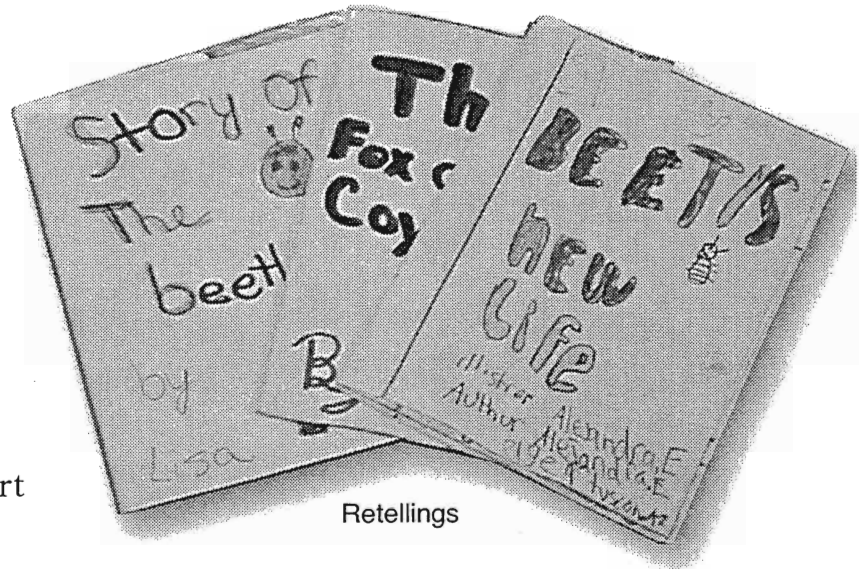 Story of
The
beetl
by
Lisa
Th
Fox
Coy
B
BEETl'S
NEW
Life
illistrar Alejandra.E
Authur Alejandra.E
age 9 tucson AZ
rt
Retellings